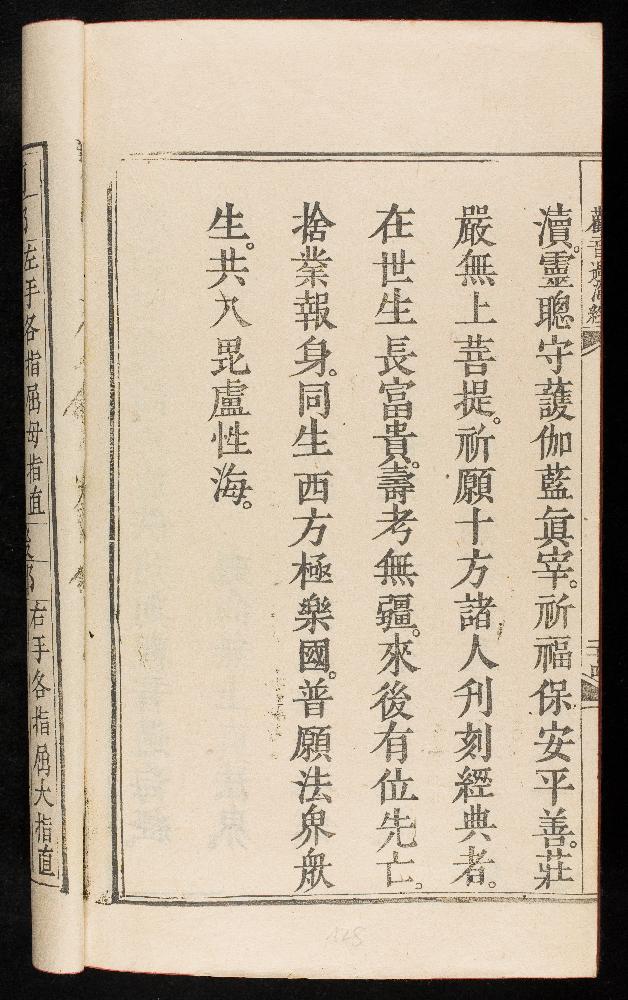 觀音過海經
二十四
瀆。靈聰守護伽藍眞宰。祈福保安平善。莊
嚴無上菩提。祈願十方諸人刋刻經典者。
在世生長富貴。壽考無疆。來後有位先亡。
捨業報身。同生西方極樂國。普願法界衆
生。共入毘盧性海。
左手各指屈母指直
右手各指屈大指直